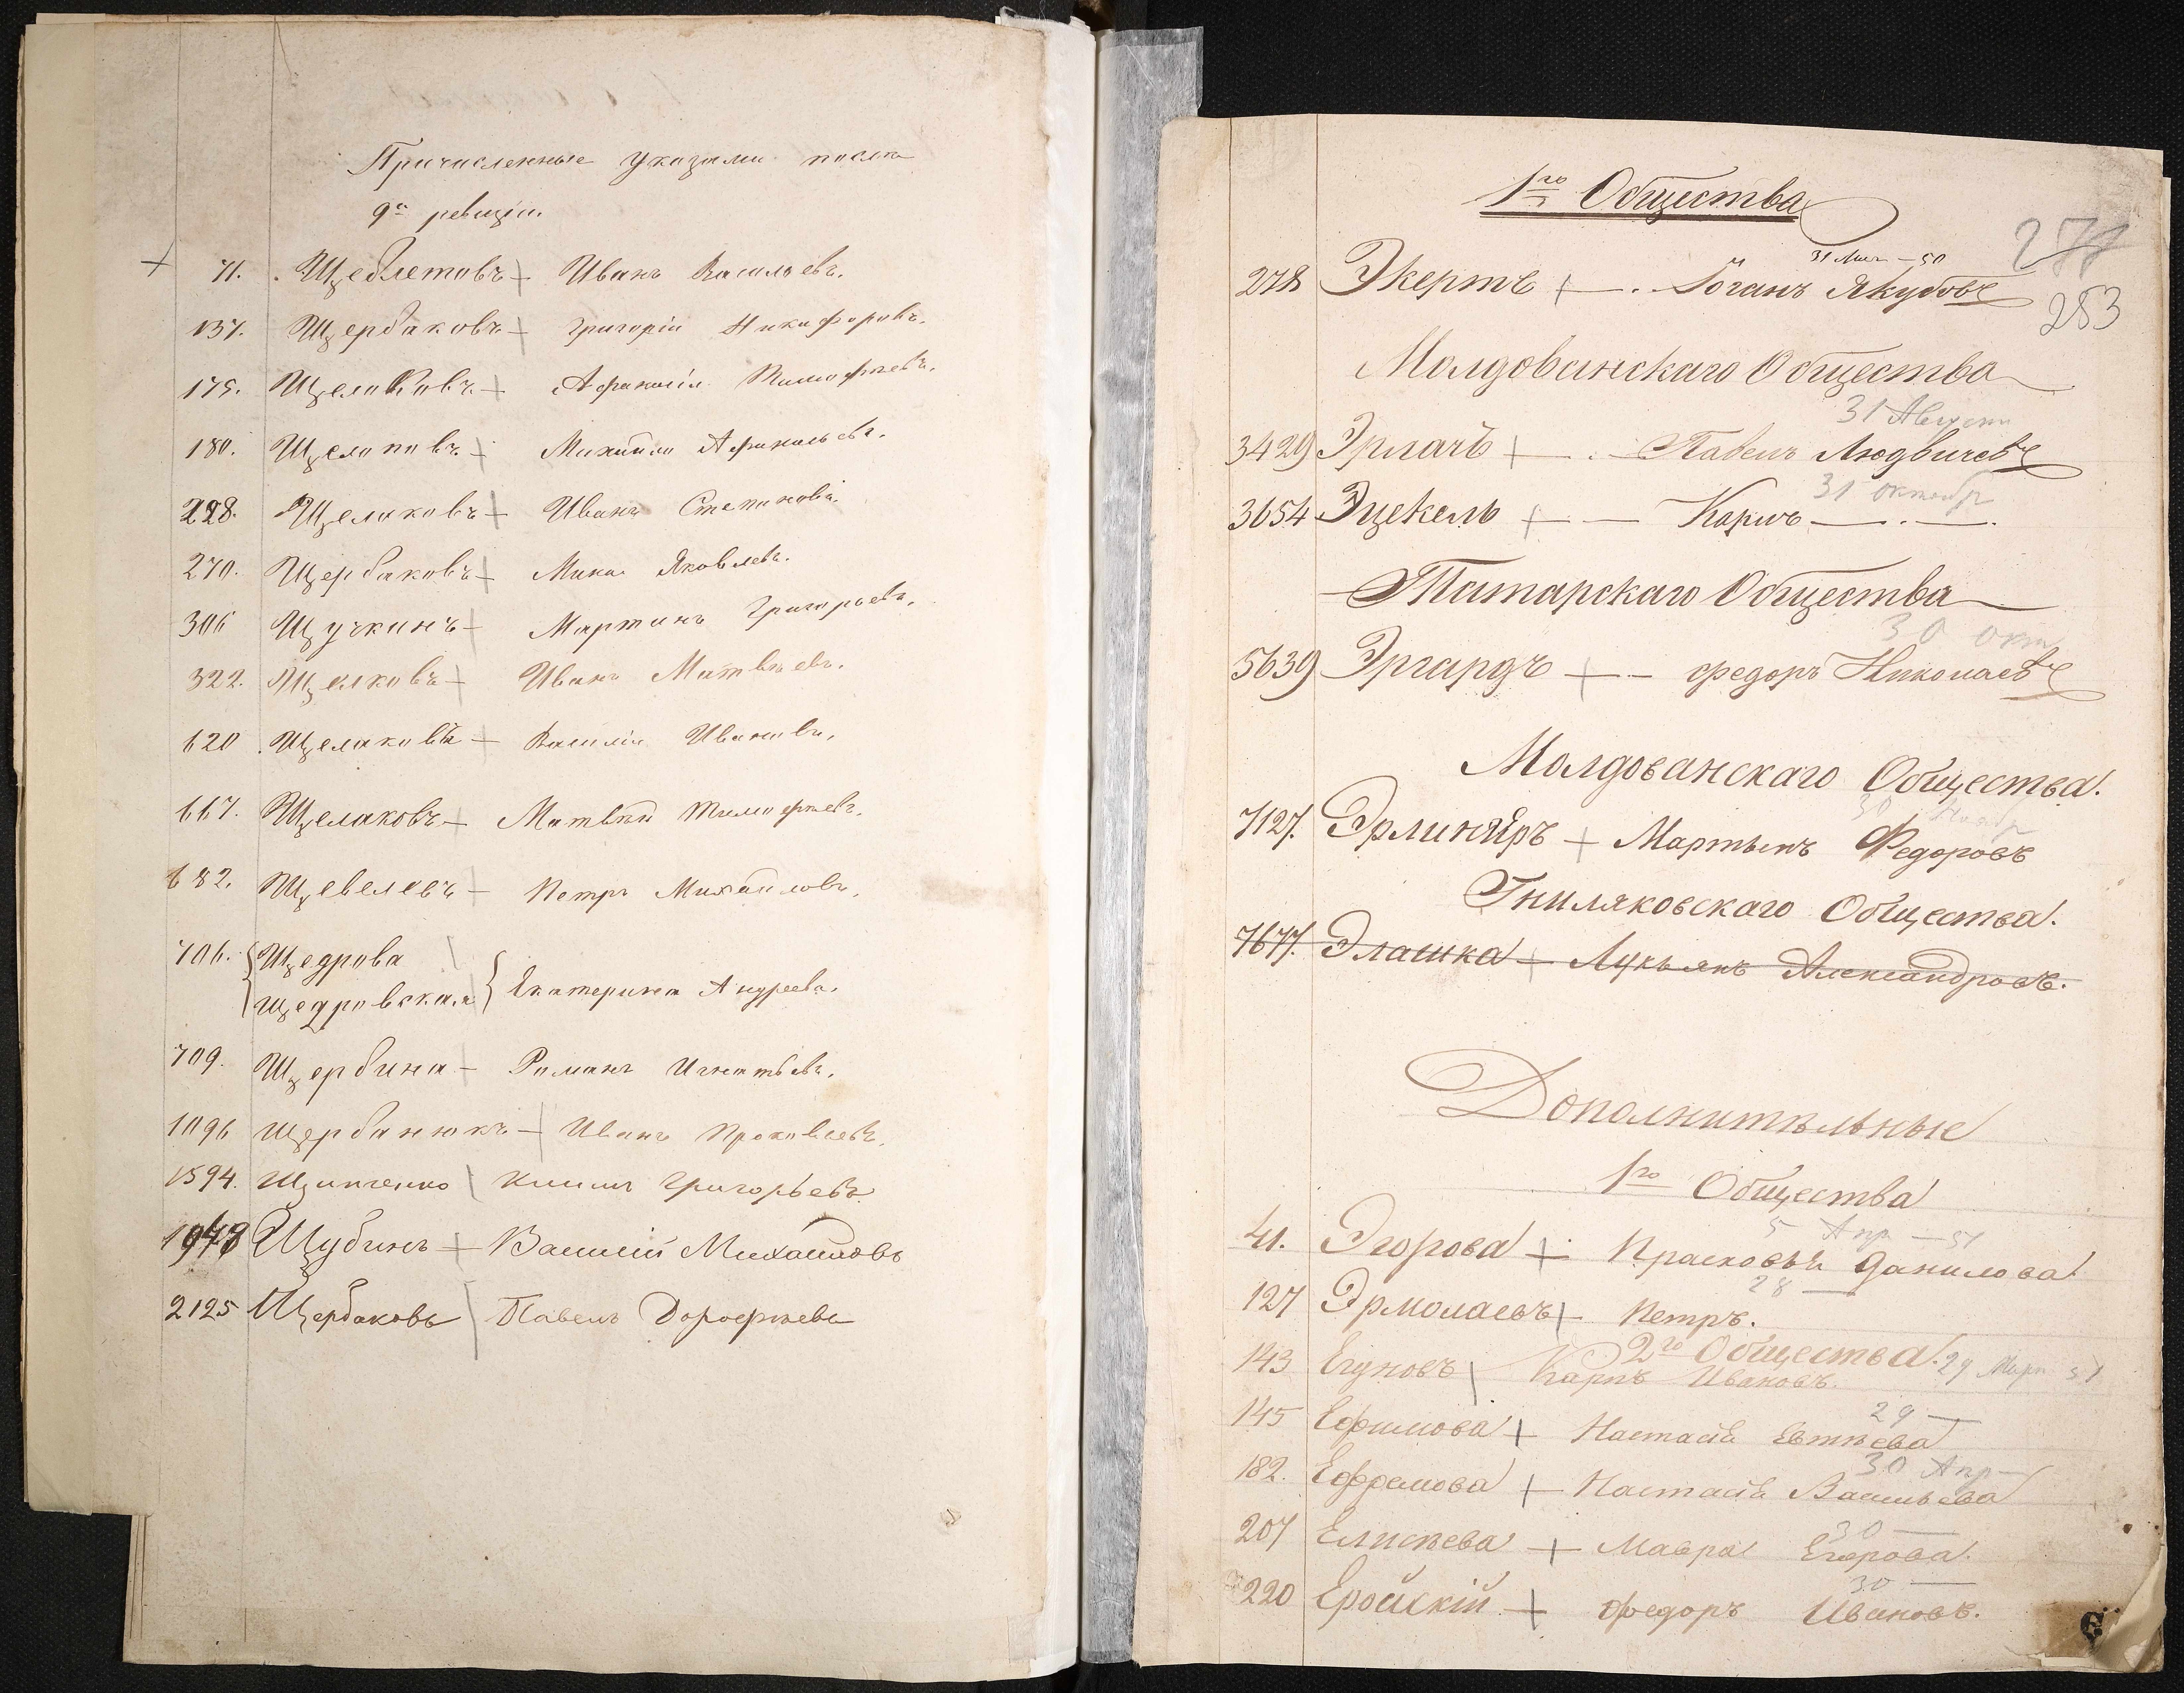 Причисленные указами после
9й ревизіи.
71. Щеблетовъ Иванъ Васильевъ.
137. Щербаковъ Григорій Никифоровъ.
175. Щелоковъ Афанасій Тимофѣевъ.
180. Щелоковъ Михайло Афанасьевъ.
228. Щелоковъ Иванъ Степановъ.
270. Щербаковъ Мина Яковлевъ.
306 Щучкинъ Мартинъ Григорьевъ.
322. Щелковъ Иванъ Матвѣевъ.
620 Щелаковъ Василій Ивановъ.
667. Щелаковъ Матвѣй Тимофѣевъ.
682. Щевелевъ Петръ Михайловъ.
706. Щедрова
Щедровская Екатерина Андреева.
709. Щербина Романъ Игнатьевъ.
1096 Щербанюкъ Иванъ Прокопьевъ.
1594. Щипченко Григорьевъ
1948 Щубинъ Василій Михайловъ
2125 Щербаковъ Павелъ Дорофѣевъ
1го Общества
277
31 – 50
278 Экертъ Іоганъ Якубовъ
253
Молдованскаго Общества
31 Август
3429 Эрлачъ Павелъ Людвичевъ
31 октябр
3654 Эцекель Карлъ
Татарскаго Общества
30 окт
5639 Эргардъ Федоръ Николаевъ
Молдованскаго Общества.
30 Ноябр
7127. Эрлингръ Мартынъ Федоровъ
Гниляковскаго Общества.
7677. Элашка Лукьянъ Александровъ.
Дополнительные
1го Общества
5 Апр – 51
41. Эгорова Прасковья Данилова
28 —
127 Эрмолаевъ Петръ.
2го Общества. 29 Март 51
143 Егуновъ Карпъ Ивановъ.
29 —
145 Ефимова Настасія Евтѣева
30 Апр
182. Ефремова Настасія Васильева
30 —
207 Елисѣева Мавра Егорова.
30 —
220 Еройскій Федоръ Ивановъ.